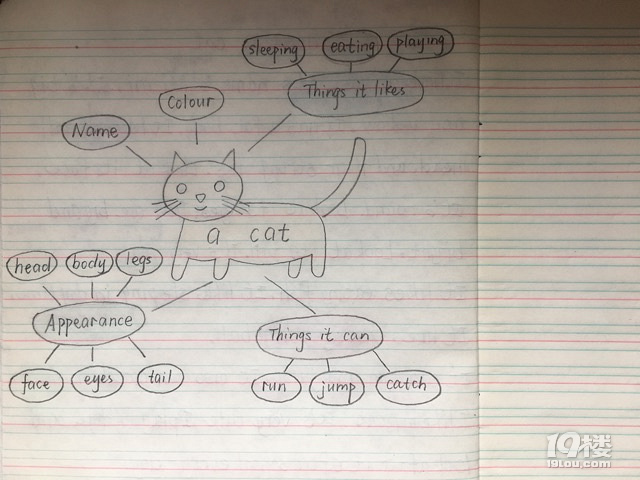 sleeping
eating
playing
Things it likes
Colour
Name
a cat
head
body
legs
Appearance
face
eyes
tail
Things it can
run
jump
catch
19楼
19lou.com